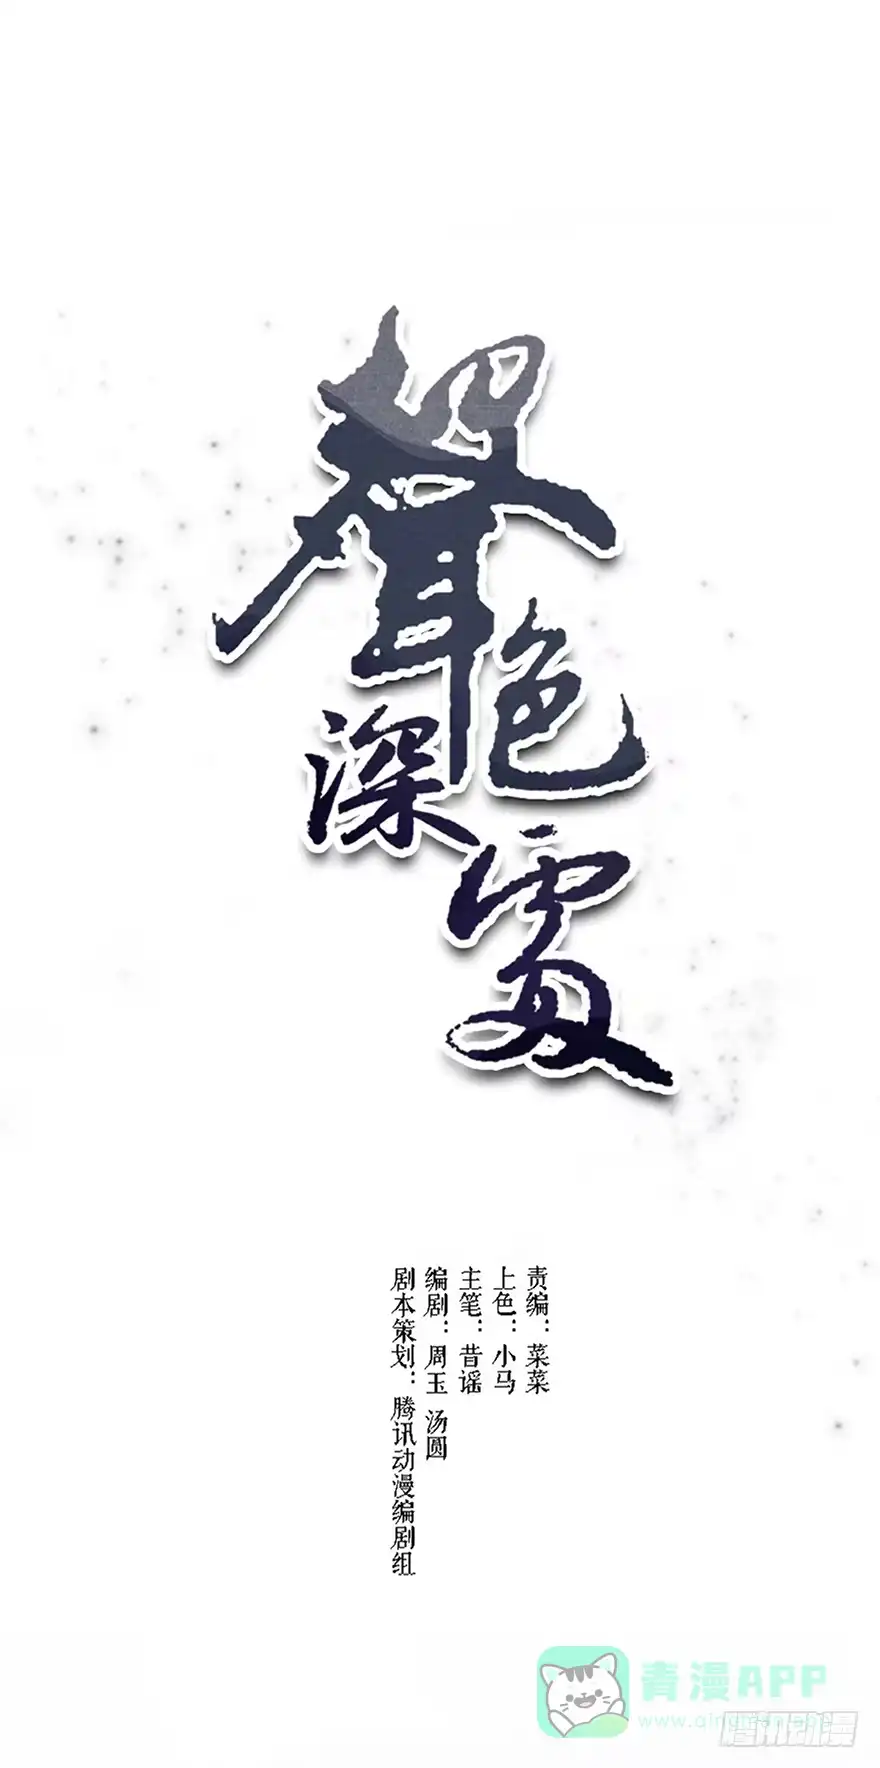 聲色深處
责编：菜菜
上色：小马
主笔：昔谣
编剧：周玉 汤圆
剧本策划：腾讯动漫编剧组
青漫APP
www.qingman.app
腾讯动漫